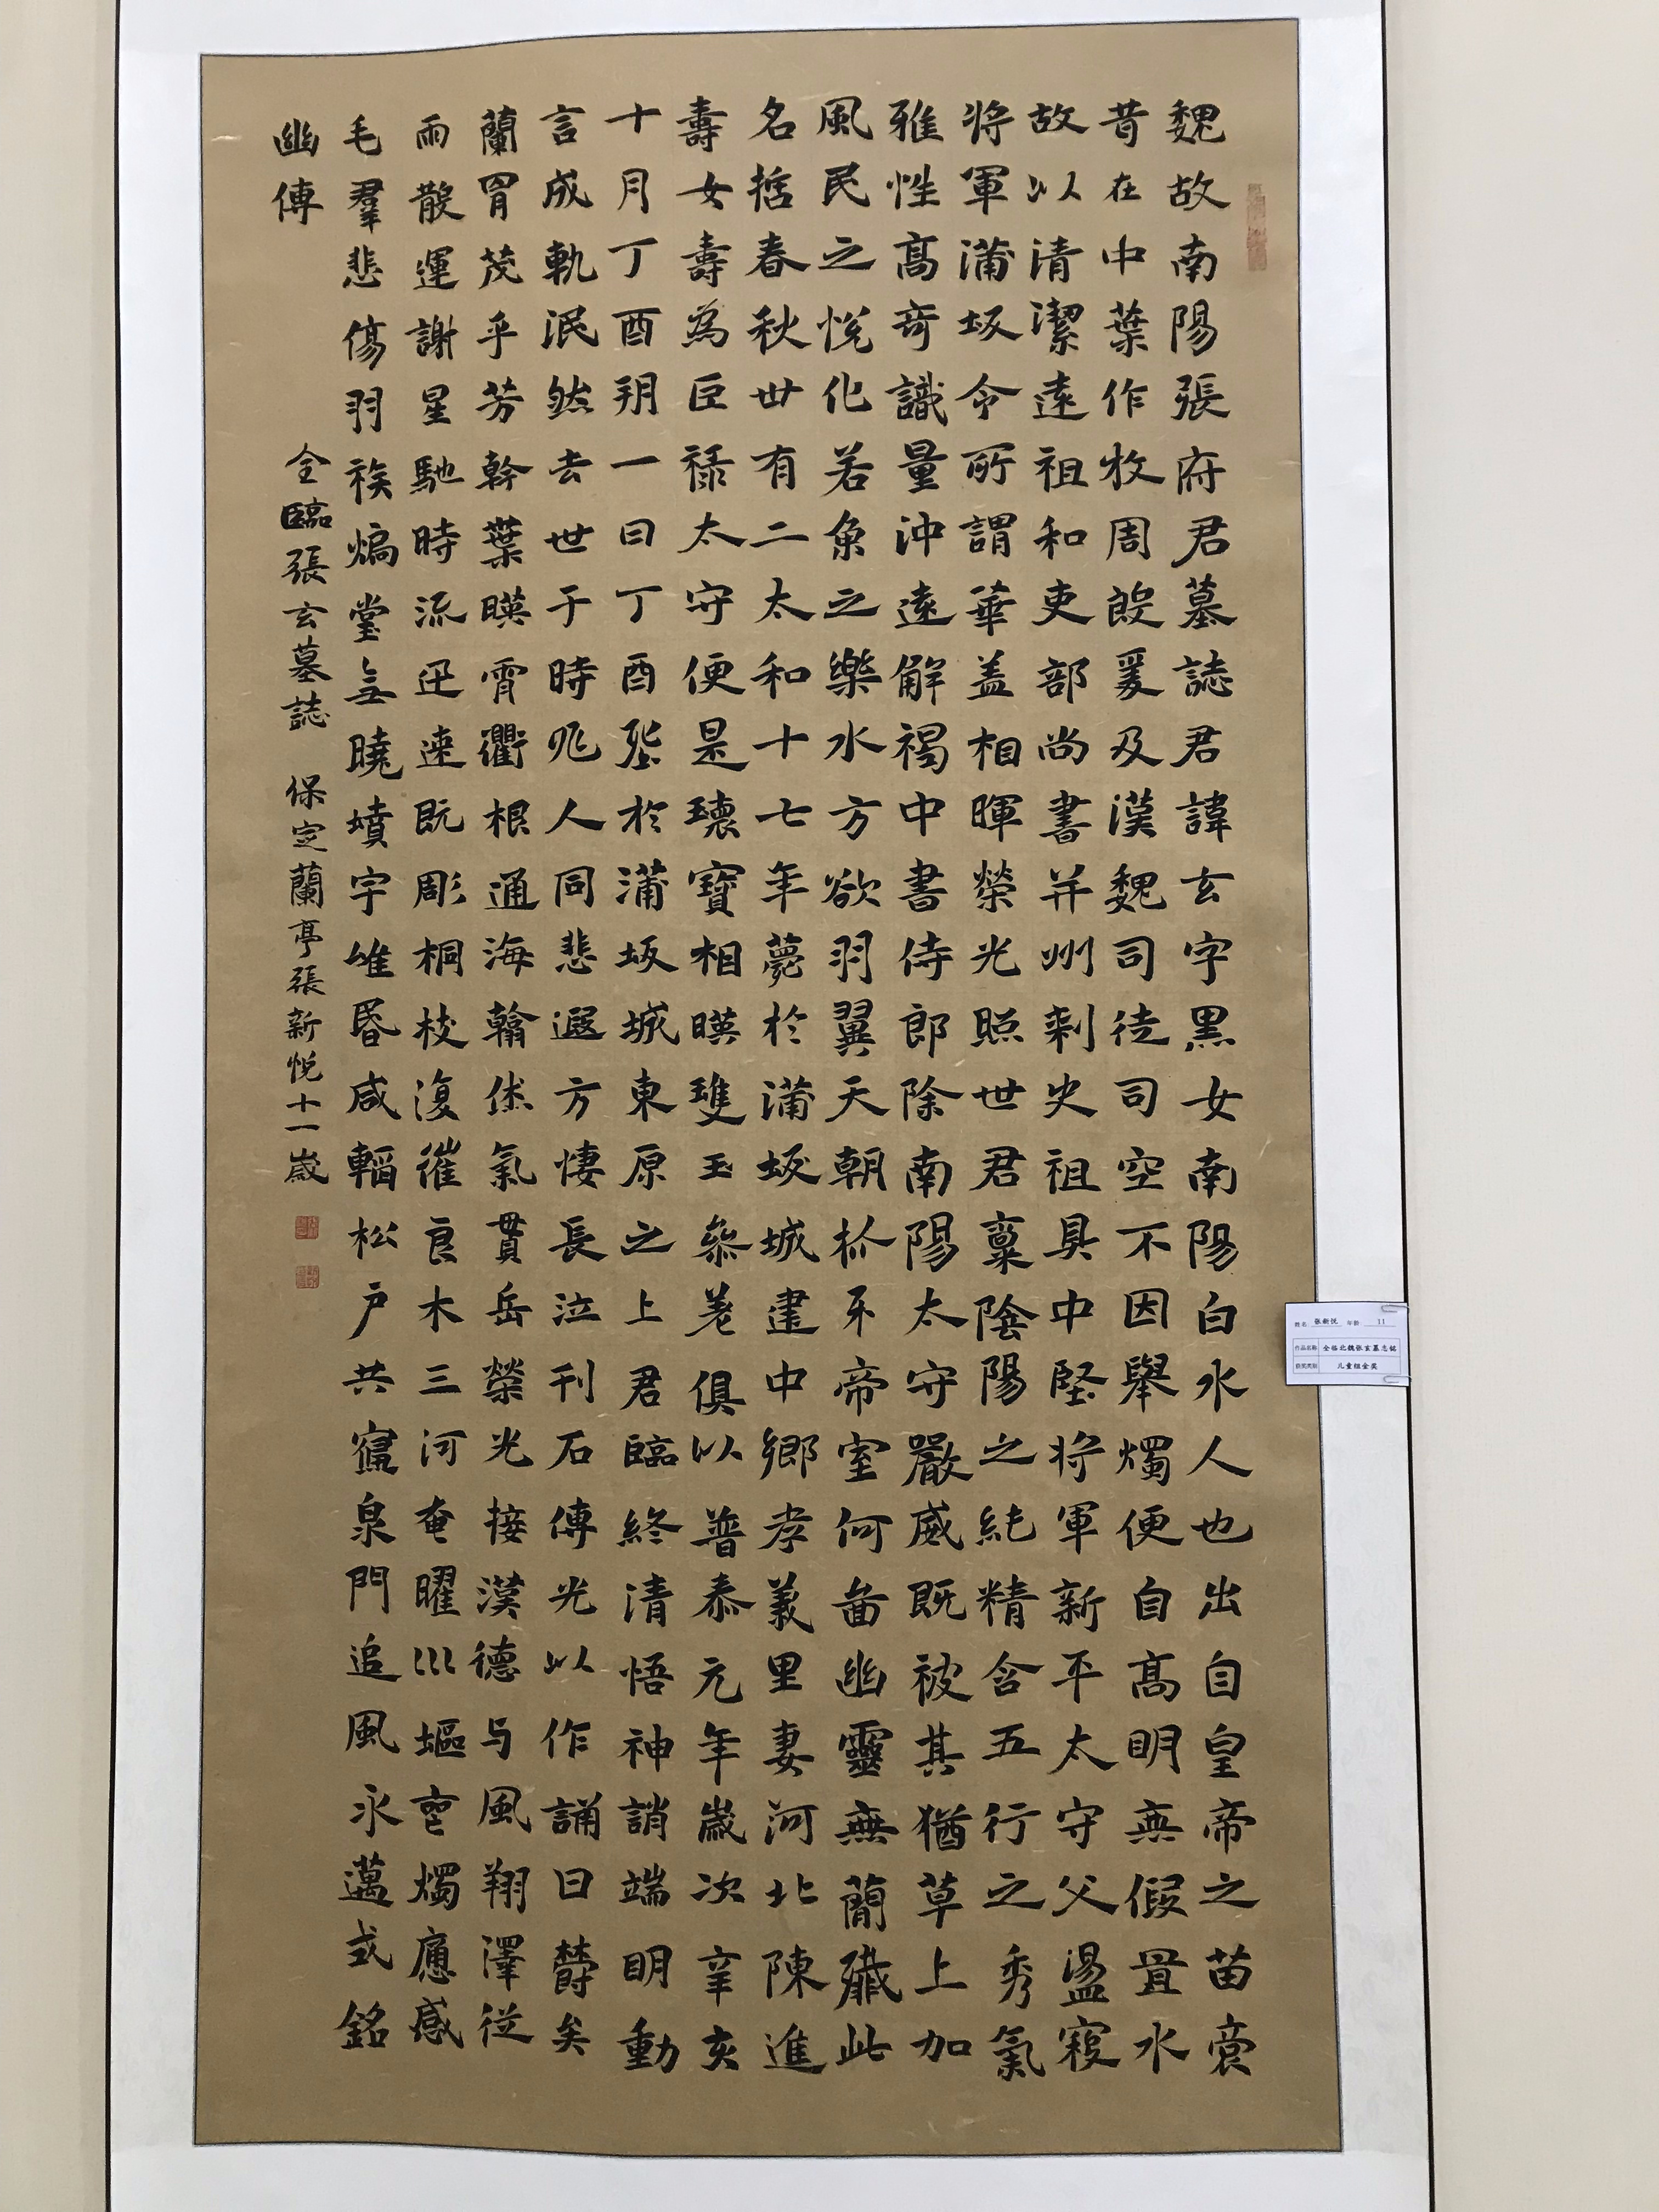 魏故南陽張府君墓誌君諱玄字黑女南陽白水人也出自皇帝之苗裔
昔在中葉作牧周殷爰及漢魏司徒司空不因舉燭便自高明無假置水
故以清潔遠祖和吏部尚書并州刺史祖具中堅將軍新平太守父盪寇
將軍蒲坂令所謂華盖相暉榮光照世君稟陰陽之純精含五行之秀氣
雅性高奇識量沖遠解褐中書侍郎除南陽太守嚴威既被其猶草上加
風民之悅化若魚之樂水方欲羽翼天朝抓牙帝室何啚幽靈無簡殲此
名哲春秋卅有二太和十七年薨於蒲坂城建中鄉孝義里妻河北陳進
壽女壽為巨祿太守便是瓌寶相暎瓊玉參差俱以普泰元年歲次辛亥
十月丁酉朔一日丁酉塟於蒲坂城東原之上君臨終清悟神誚端明動
言成軌泯然去世于時兆人同悲遐方悽長泣刊石傳光以作誦曰欝矣
蘭胄茂乎芳幹葉暎霄衢根通海翰俶氣貫岳榮光接漢德与風翔澤從
雨散運謝星馳時流迅速既彫桐枝復摧良木三河奄曜川塸壼燭痝感
毛羣悲傷羽族煸堂無曉墳宇唯昏咸韜松戶共寢泉門追風永邁式銘
幽傳
全臨張玄墓誌 保定蘭亭張新悅十一歲
姓名 张新悦 年龄 11
作品名称 全临北魏张玄墓志铭
获奖类别 儿童组金奖